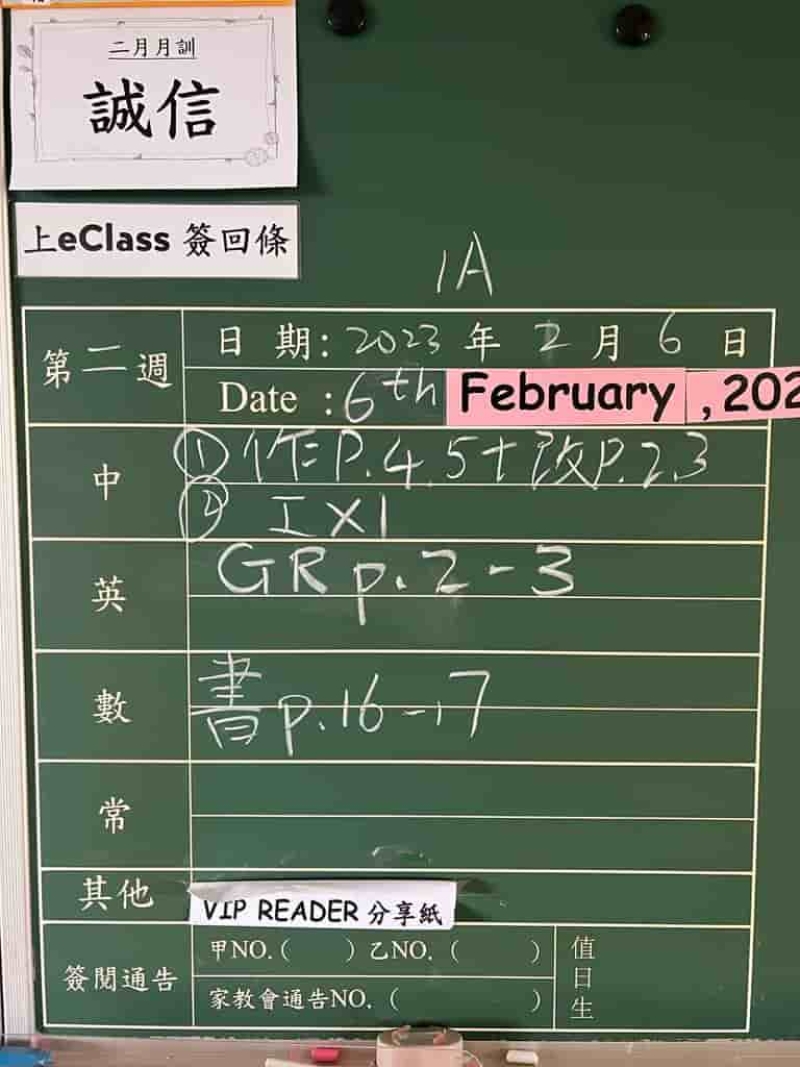 二月月訓
誠信
上eClass 簽回條
1A
第二週
日 期: 2023 年 2 月 6 日
Date : 6th February , 202
中
① 作P.4,5+改P.2,3
② 工X1
英
GR p.2-3
數
書p.16-17
常
其他
VIP READER 分享紙
簽閱通告
甲NO.( ) 乙NO. ( )
家教會通告NO. ( )
值日生